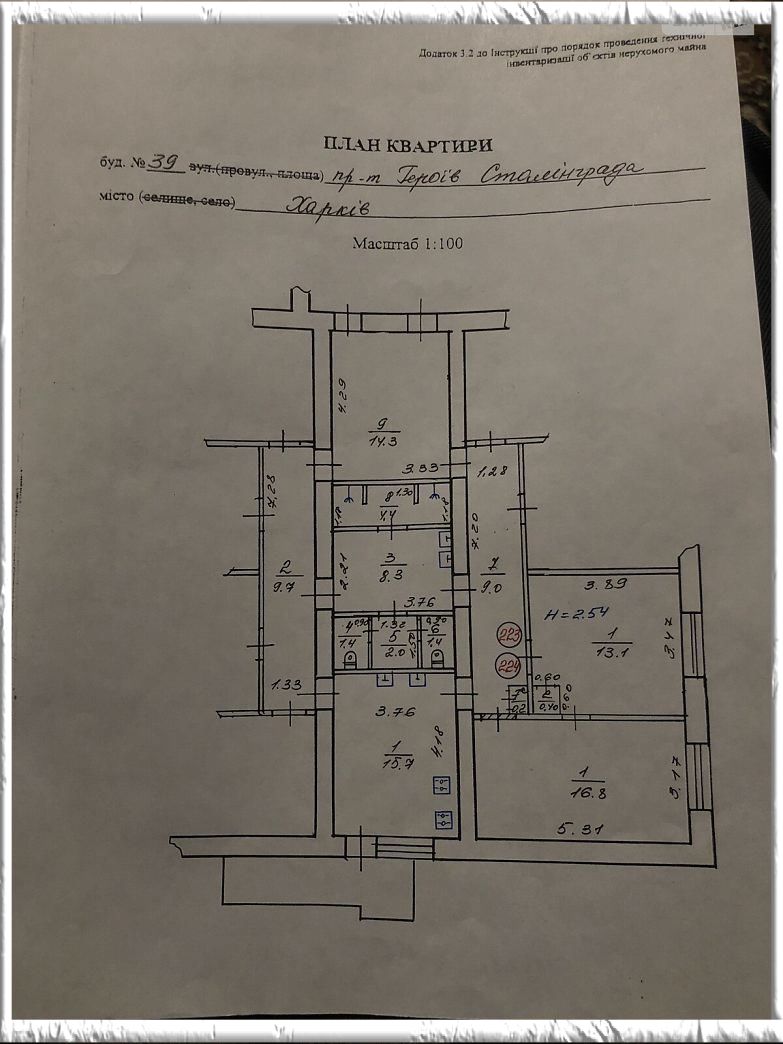 Додаток 3.2 до Інструкції про порядок проведення технічної
інвентаризації об'єктів нерухомого майна
ПЛАН КВАРТИРИ
буд. № 39 вул.(провул., площа) пр-т Героїв Сталінграда
місто (селище, село) Харків
Масштаб 1:100
4.29
9
14.3
3.33
1.28
7.28
8
4.4
1.30
1.18
1.18
7.20
2
9.7
2.21
3
8.3
3.76
7
9.0
3.89
H=2.54
1
13.1
3.47
4
1.4
0.90
1.32
5
2.0
1.50
0.90
6
1.4
223
224
1.33
0.60
2
0.40
0.60
0.2
3.76
1
15.7
4.18
1
16.8
3.17
5.31